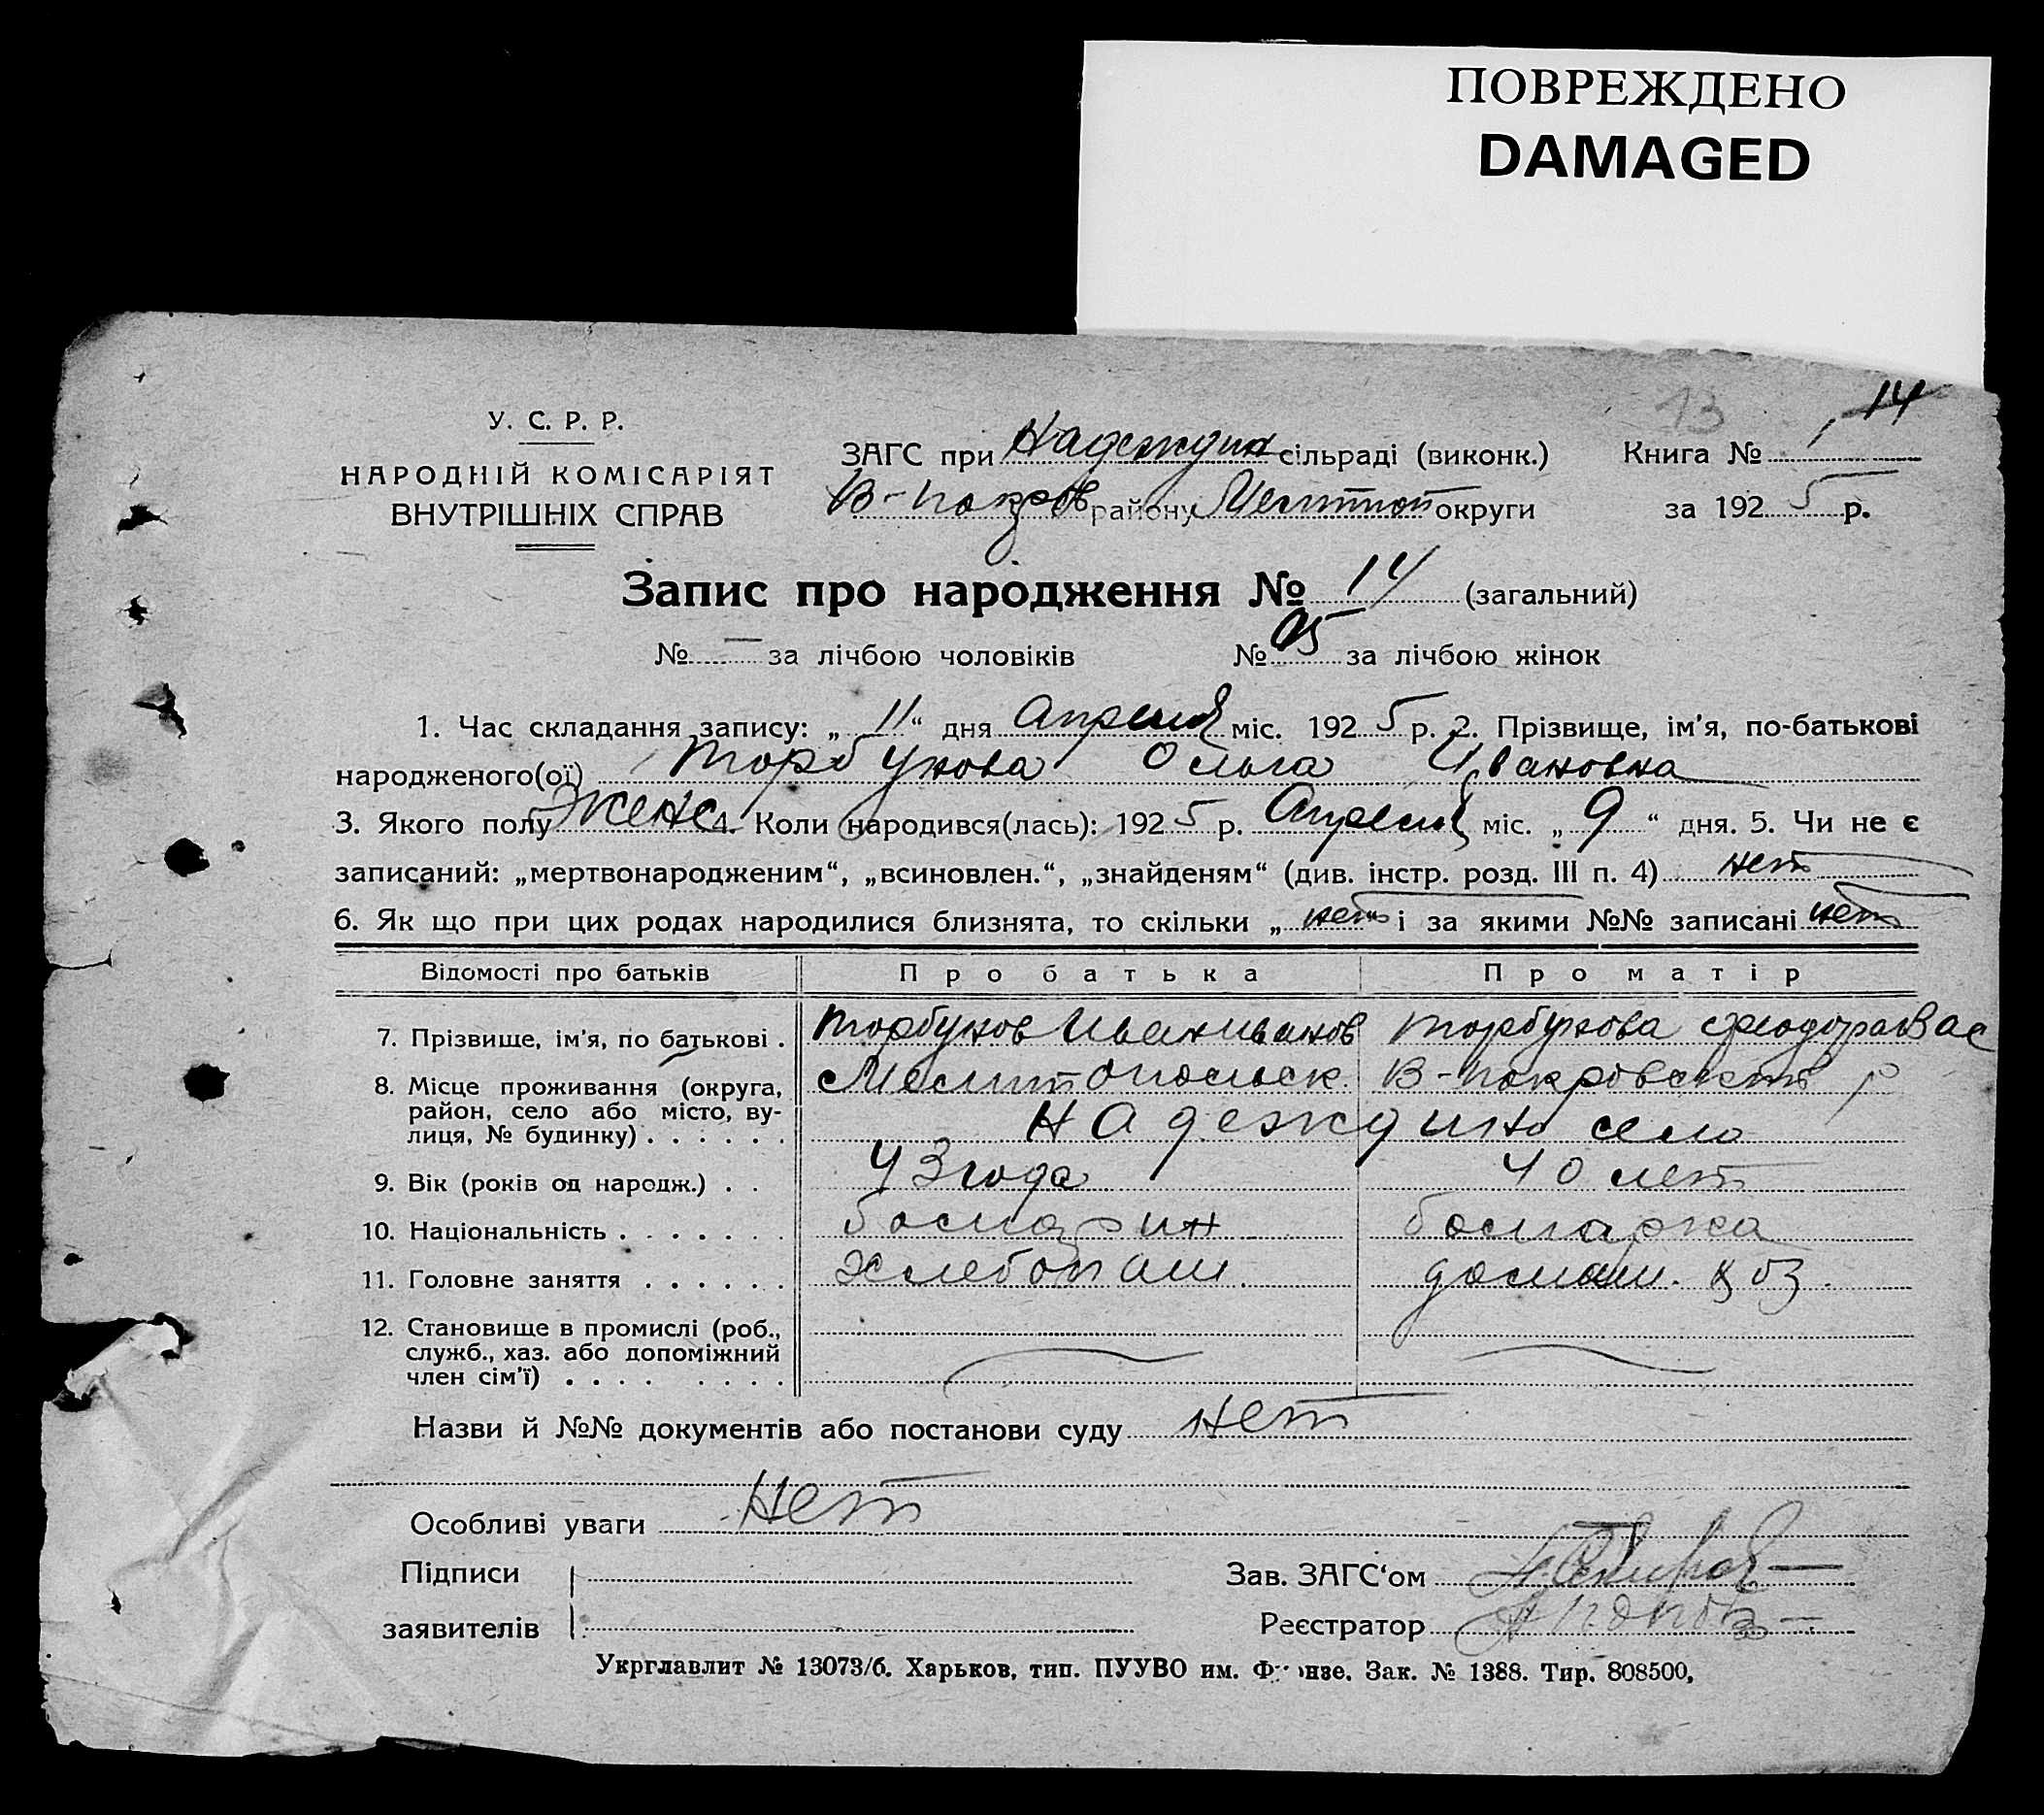 ПОВРЕЖДЕНО
DAMAGED
13 14
У. С. Р. Р.
НАРОДНІЙ КОМІСАРІЯТ
ВНУТРІШНІХ СПРАВ
ЗАГС при Надеждин сільраді (виконк.) Книга № 1
В-Покров району Мелитоп округи за 1925 р.
Запис про народження № 14 (загальний)
№ — за лічбою чоловіків № 05 за лічбою жінок
1. Час складання запису: „ 11 “ дня Апреля міс. 1925 р. 2. Прізвище, ім'я, по-батькові
народженого(ої) Торбунова Ольга Ивановна
3. Якого полу Женс 4. Коли народився(лась): 1925 р. Апреля міс. „ 9 “ дня. 5. Чи не є
записаний: „мертвонародженим“, „всиновлен.“, „знайденям“ (див. інстр. розд. III п. 4) нет
6. Як що при цих родах народилися близнята, то скільки „ нет “ і за якими №№ записані нет
Відомості про батьків Про батька Про матір
7. Прізвище, ім'я, по батькові . Торбунов Иван Иванов Торбунова Феодора Вас
8. Місце проживання (округа, Мелитопольск. В-Покровский р
район, село або місто, ву-
лиця, № будинку) . . . . . . Надеждино село
9. Вік (років од народж.) . . 43 года 40 лет
10. Національність . . . . . . . болгарин болгарка
11. Головне заняття . . . . . . Хлебопаш. домаш. хоз.
12. Становище в промислі (роб.,
служб., хаз. або допоміжний
член сім'ї) . . . . . . . .
Назви й №№ документів або постанови суду нет
Особливі уваги Нет
Підписи Зав. ЗАГС‘ом
заявителів Реєстратор
Укрглавлит № 13073/б. Харьков, тип. ПУУВО им. Фрунзе. Зак. № 1388. Тир. 808500,